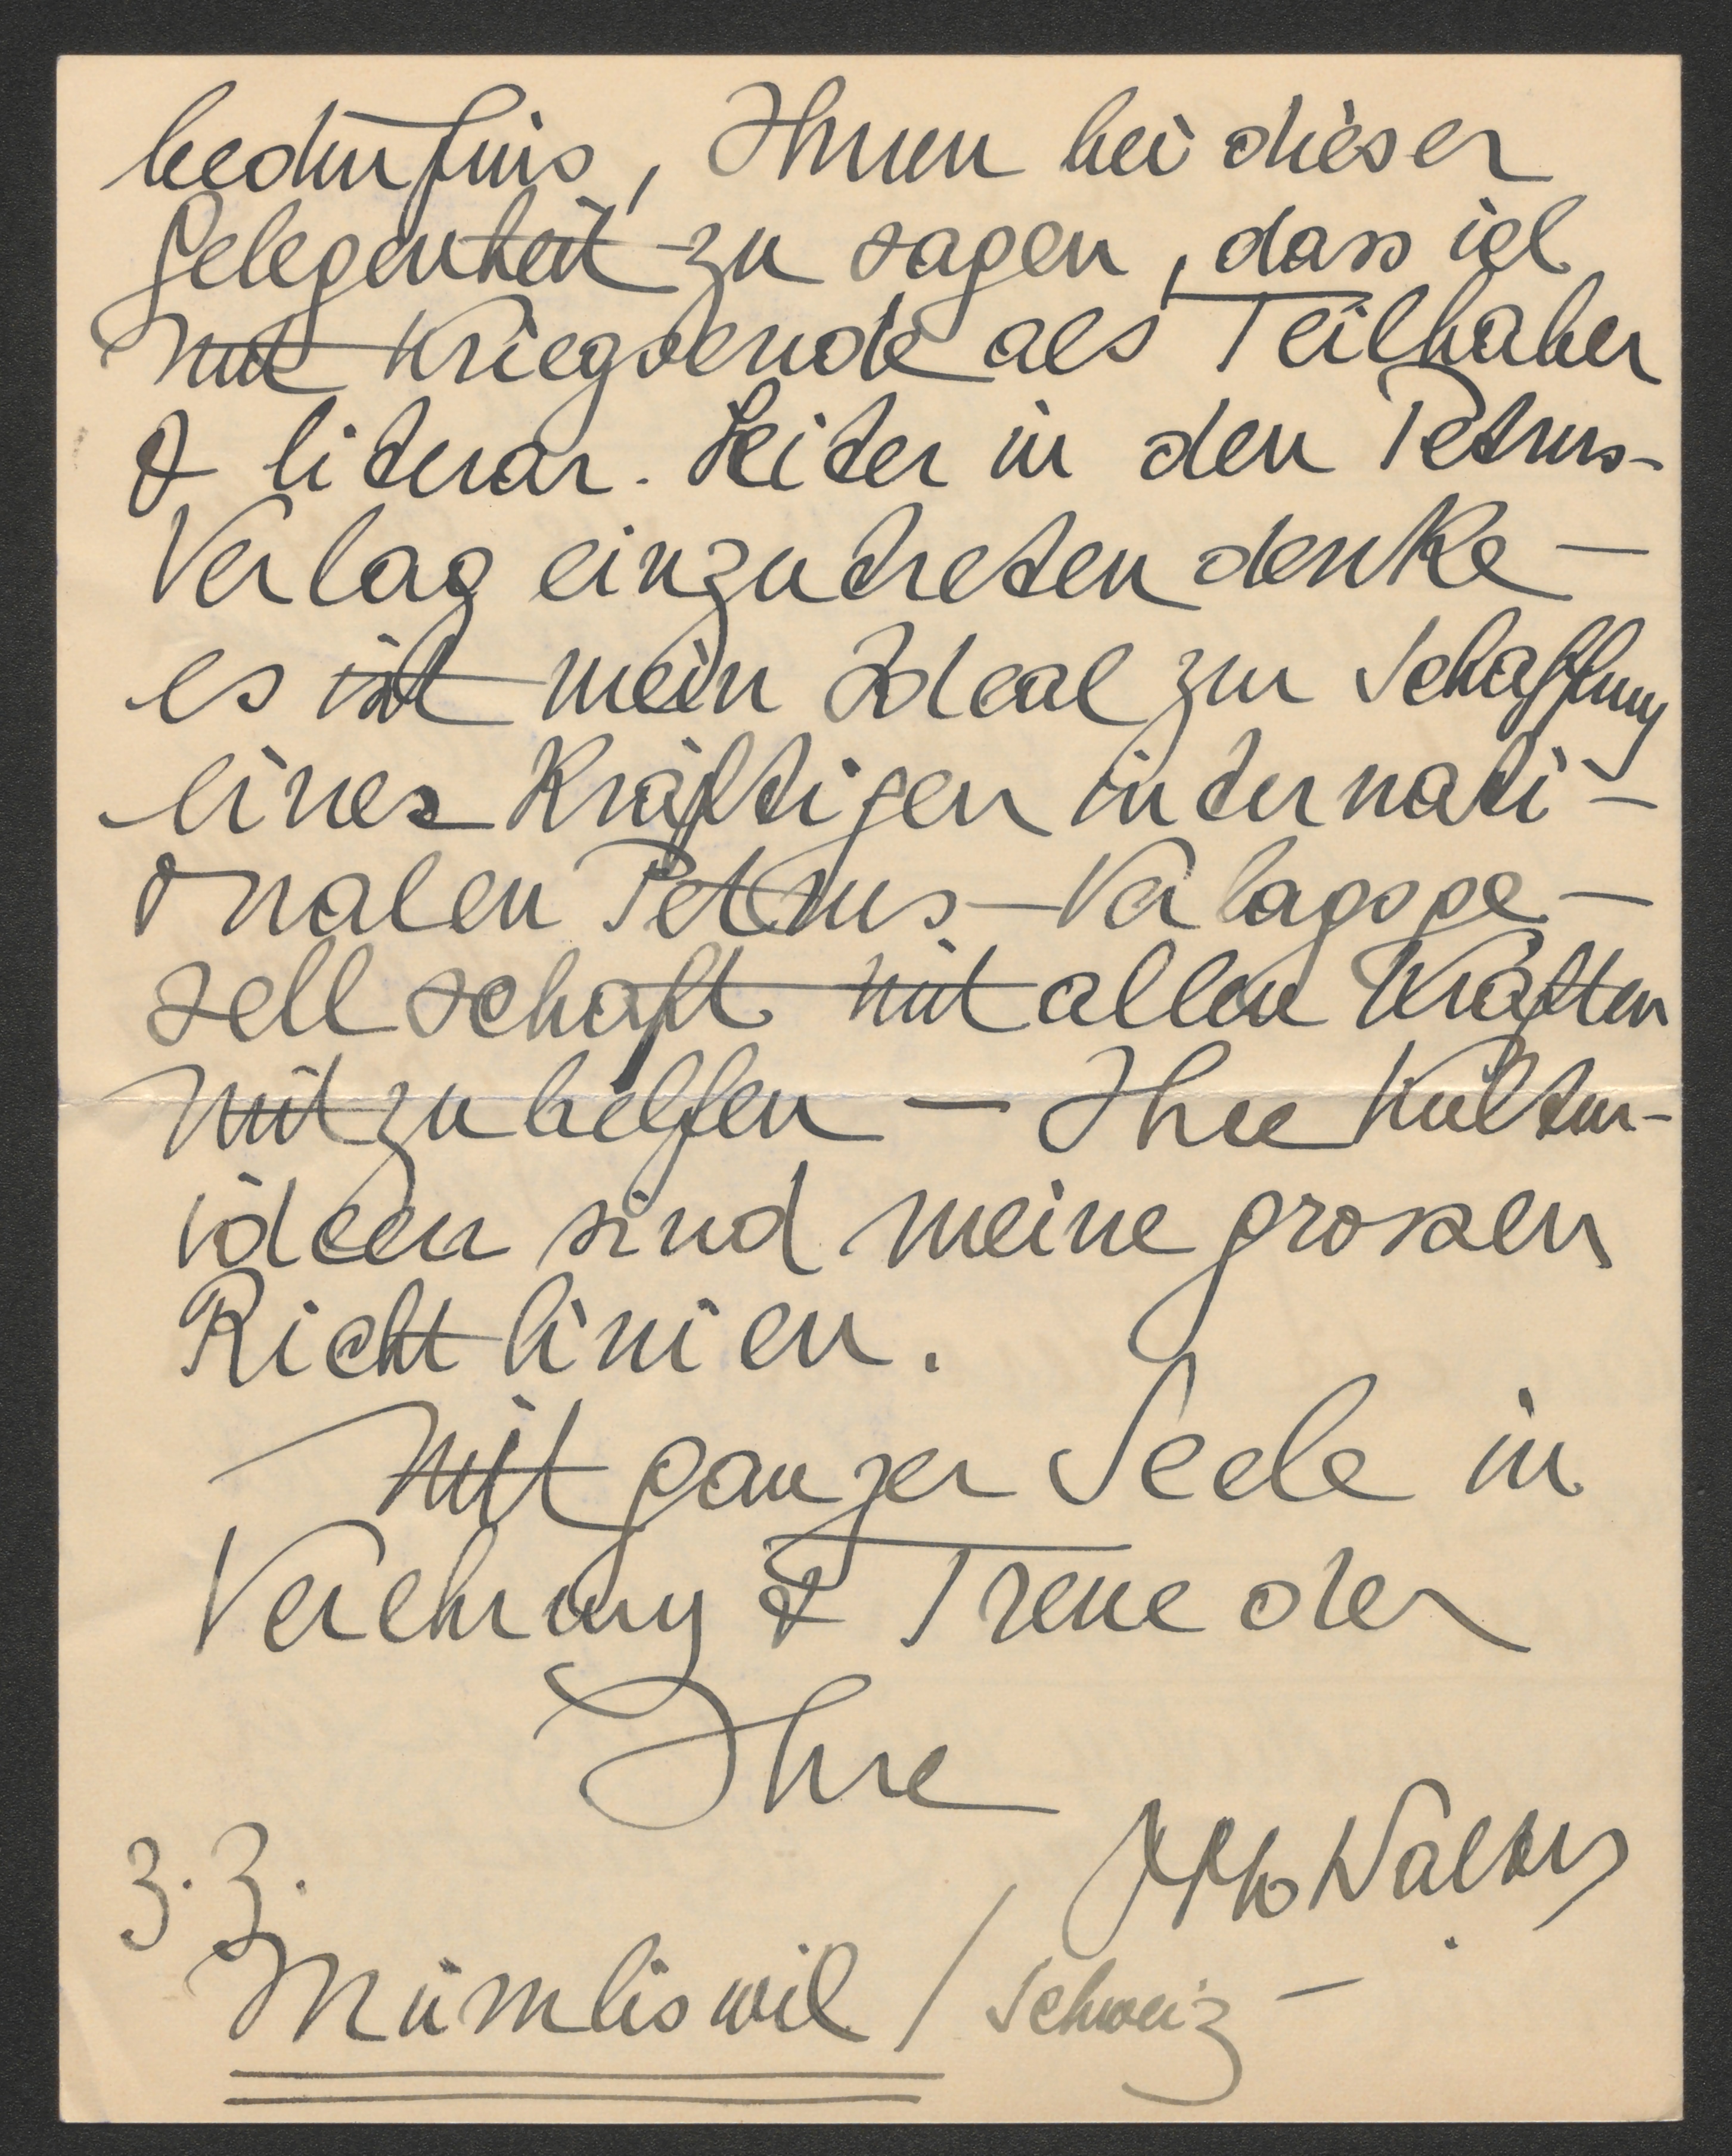 bedürfnis, Ihnen bei dieser
Gelegenheit zu sagen, dass ich
mit Kriegsende als Teilhaber
& literar. Leiter in den Petrus-
Verlag einzutreten denke —
es ist mein Ideal zur Schaffung
eines kräftigen internati-
onalen Petrus-Verlagsge-
sellschaft mit allen Kräften
mitzuhelfen — Ihre Kultur-
ideen sind meine grossen
Richtlinien.
Mit ganzer Seele in
Verehrung & Treue der
Ihre
Otto Walter
z. Z.
Mümliswil / Schweiz —